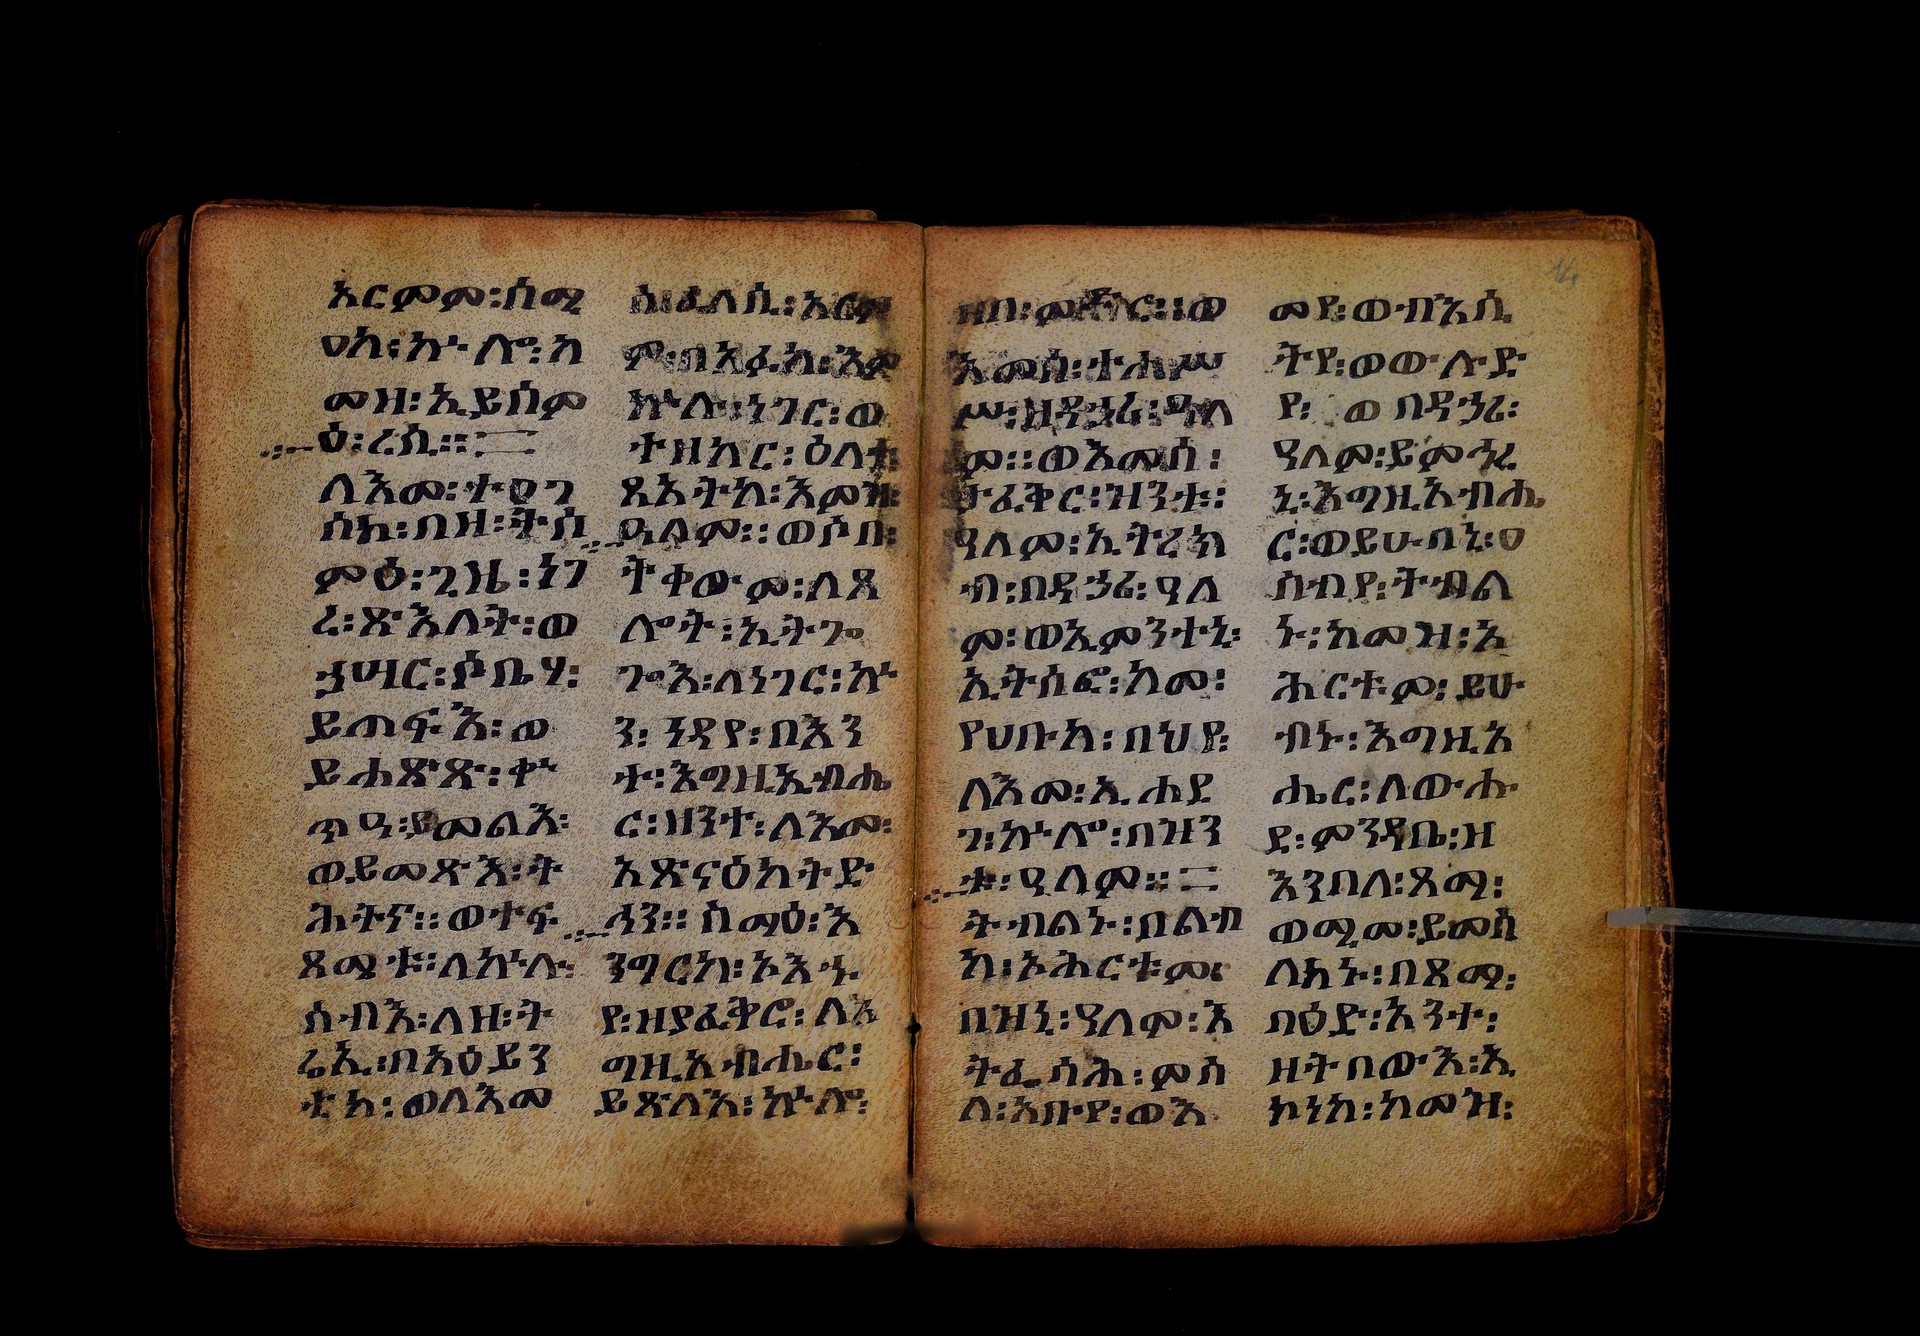 አርምም፡ሰሚ
ዐከ፡ኵሎ፡ከ
መዝ፡ኢይሰም
ዕ፡ረሲ።
ለእመ፡ተዐገ
ሰከ፡በዘ፡ትሰ
ምዕ፡ጊዜ፡ነገ
ረ፡ጽእለት፡ወ
ኃሣር፡ሶቤሃ፡
ይጠፍእ፡ወ
ይሐጽጽ፡ቍ
ጥዓ፡ይመልእ፡
ወይመጽእ፡ት
ሕትና።ወተፍ
ጻሜቱ፡ለኵሉ፡
ሰብእ፡ለዘ፡ት
ሬኢ፡በአዕይን
ቲከ፡ወለእመ
ፈለሲ፡አርም
ም፡በአፉከ፡እም
ኵሉ፡ነገር፡ወ
ተዘከር፡ዕለተ፡
ጸአትከ፡እምዝ፡
ዓለም።ወሶበ፡
ትቀውም፡ለጸ
ሎት፡ኢትጐ
ጕእ፡ለነገር፡ኵ
ን፡ነዳየ፡በእን
ተ፡እግዚኣብሔ
ር፡ዘንተ፡ለእመ፡
አጽናዕከትድ
ኅን።ስማዕ፡እ
ንግርከ፡ኦእኁ
የ፡ዘያፈቅሮ፡ለእ
ግዚአብሔር፡
ይጽለእ፡ኵሎ፡
እመሰ፡ተሐሥ
ሥ፡ዘዳኃሬ፡ዓለ
ም።ወእመሰ፡
ታፈቅር፡ዝንቱ፡
ዓለም፡ኢትረክ
ብ፡በዳኃሬ፡ዓለ
ም፡ወኢምንተኒ፡
ኢትሰፎ፡ከመ፡
የሀቡከ፡በህየ፡
ለእመ፡ኢሐደ
ገ፡ኵሎ፡በዝን
ቱ፡ዓለም።
ትብልኑ፡በልብ
ከ፡ኦሕርቱም፡
በዝኒ፡ዓለም፡እ
ትፌሳሕ፡ምስ
ለ፡አቡየ፡ወእ
መየ፡ወብእሲ
ትየ፡ወውሉድ
የ፡ወበዳኃሬ፡
ዓለም፡ይምኅረ
ኒ፡እግዚአብሔ
ር፡ወይሁበኒ፡ዐ
ስብየ፡ትብል
ኑ፡ከመዝ፡ኦ
ሕርቱም፡ይሁ
ብኑ፡እግዚአ
ሔር፡ለውሑ
ደ፡ምንዳቤ፡ዘ
እንበለ፡ጻማ፡
ወሚመ፡ይመስ
ለከኑ፡በጻማ፡
በዕድ፡አንተ፡
ዘትበውእ፡ኢ
ኮነከ፡ከመዝ፡